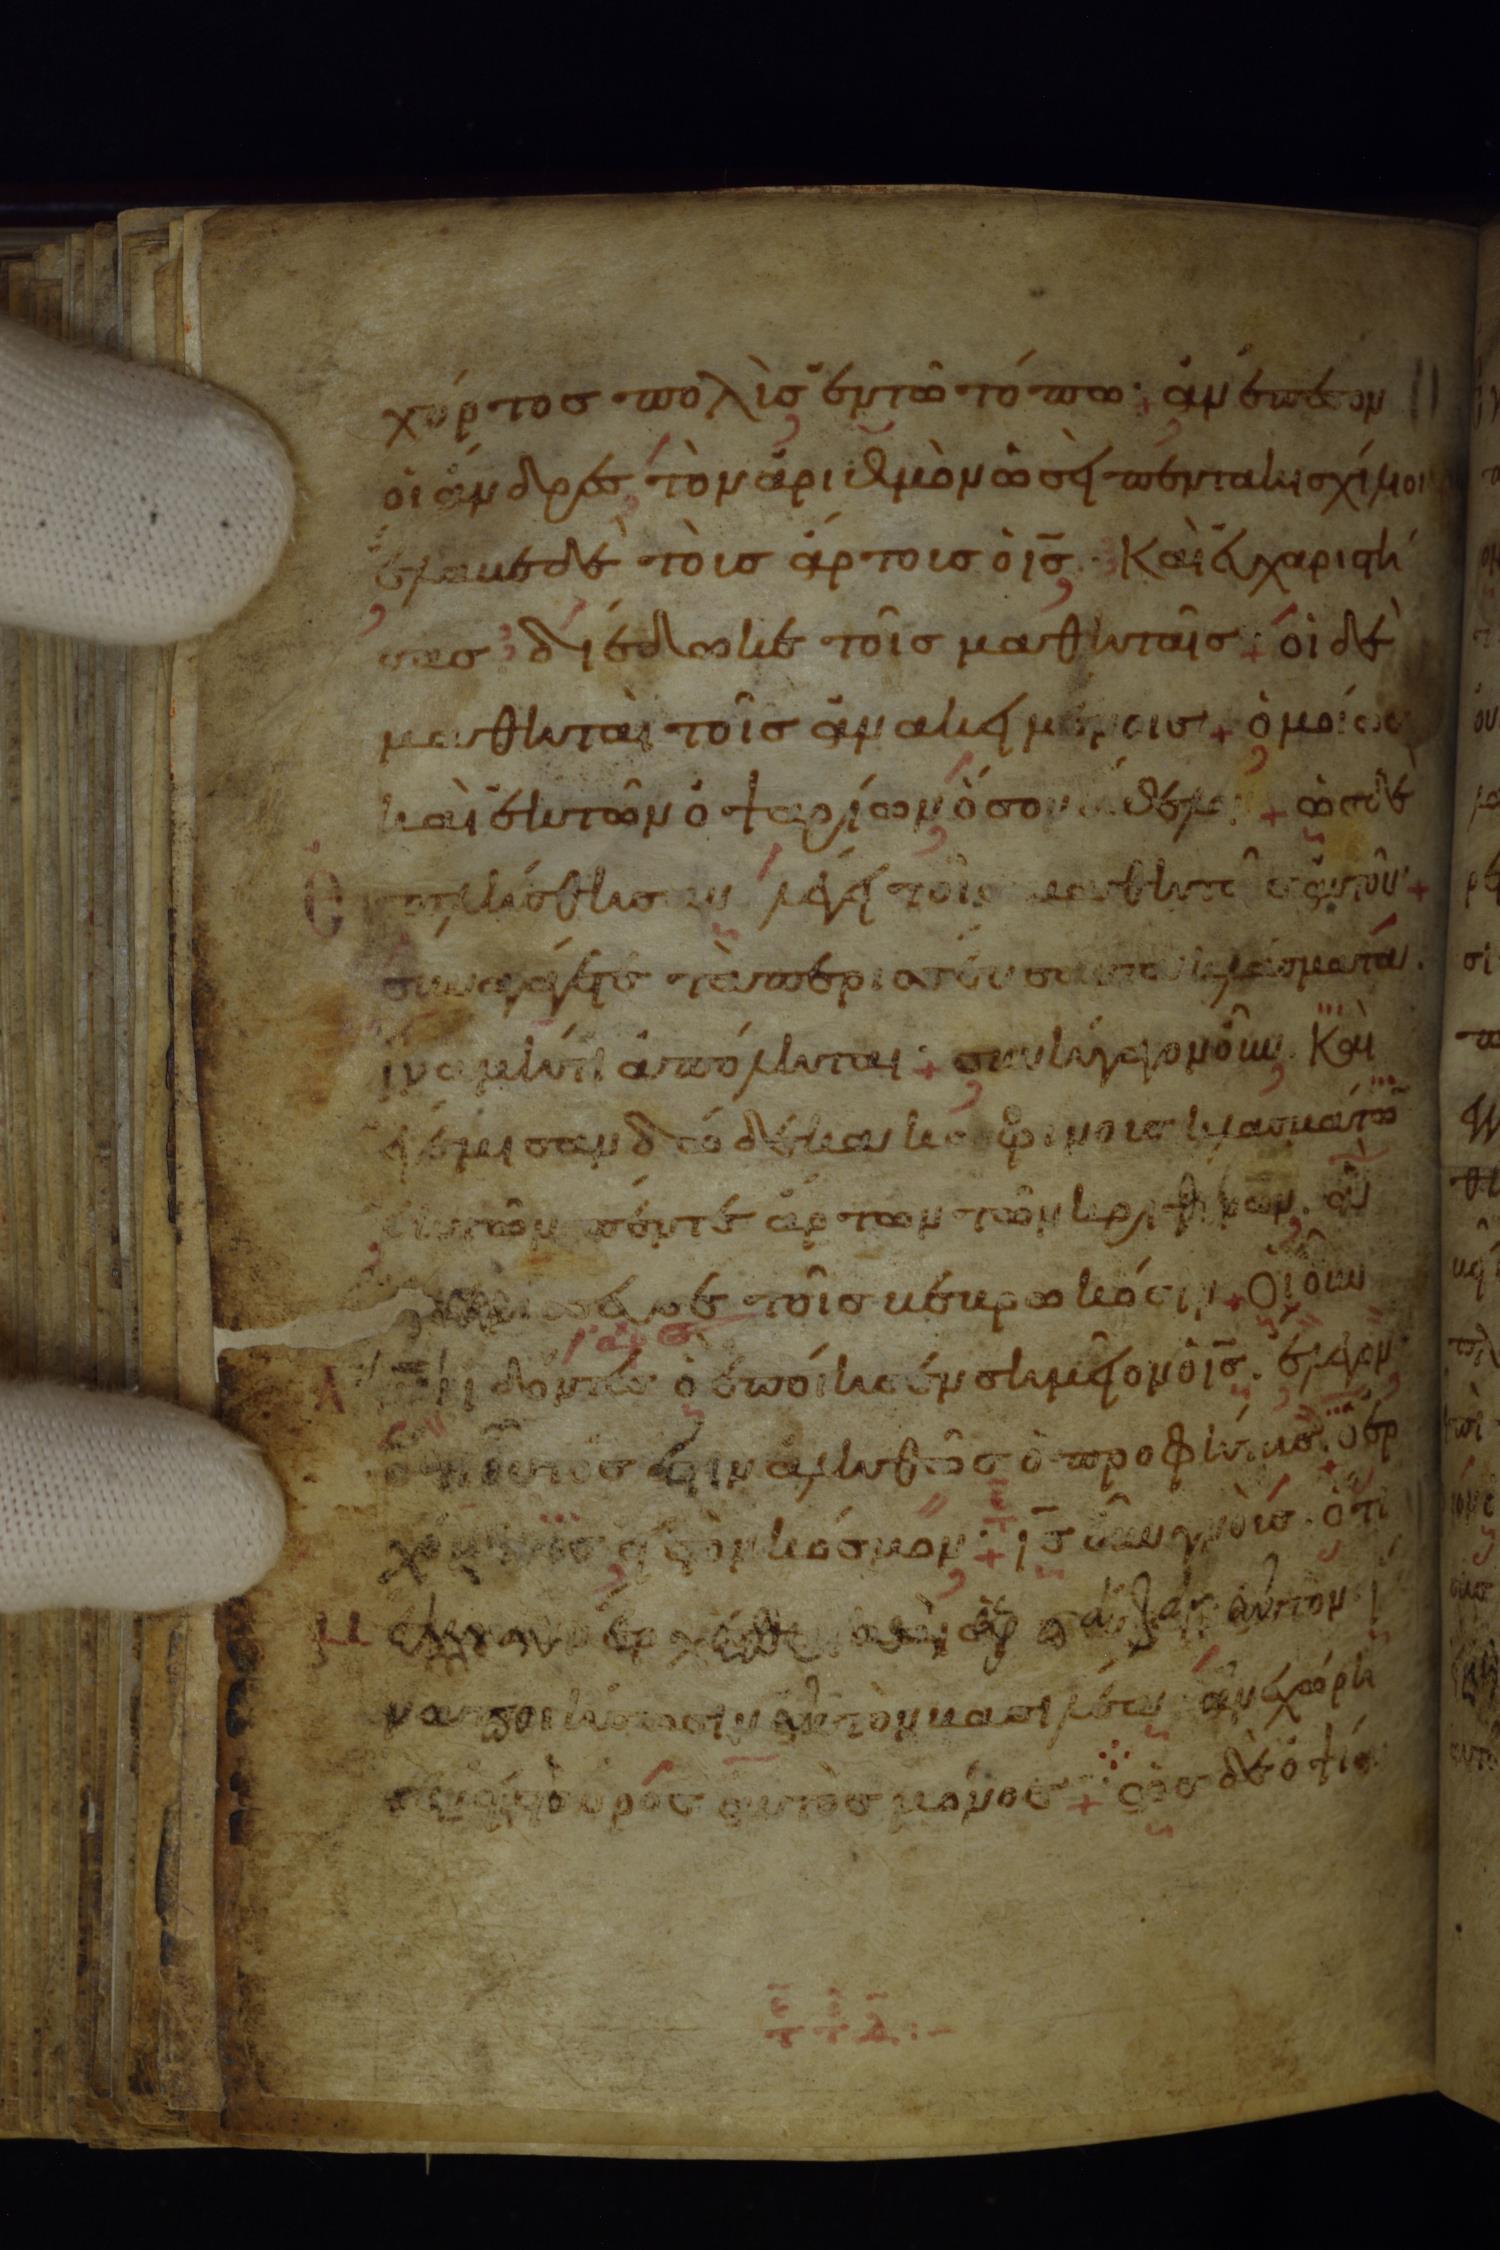 χόρτος πολὶσ ἐν τῶ τόπω· ἀνέπεσον
οἱ ἄνδρες τὸν ἀριθμὸν ὡσεὶ πεντακισχίλιοι
ἔλαβε δὲ τοὶσ ἄρτοισ ὁ ισ̄· Καὶ εὐχαριστή
σασ διέδωκε τοῖσ μαθηταῖσ· οἱ δὲ
μαθηταὶ τοῖσ ἀνακειμένοισ· ὁμοίωσ
καὶ ἐκ τῶν ὀψαρίων ὅσον ἤθελον· ὡσ δὲ
ἐνεπλήσθησαν λέγει τοῖσ μαθηταῖσ αὐτοῦ·
συναγάγετε τὰ περισσεύσαντα κλάσματα.
ἵνα μή τι ἀπόληται· συνήγαγον οὖν. Καὶ
ἐγέμισαν δώδεκα κοφίνουσ κλασμάτω
ἐκ τῶν πέντε ἄρτων τῶν κριθίνων. ἃ
ἐπερίσσευσε τοῖσ βεβρωκόσιν· Οἱ οὖν
ἄν̄οι ἰδόντεσ ὃ ἐποίησεν σημεῖον ὁ ισ̄. ἔλεγον·
ὅτι οὗτόσ ἐστιν ἀληθῶσ ὁ προφήτησ. ὁ ἐρ
χόμενοσ εἰσ τὸν κόσμον· ισ̄ οὖν γνοὺσ. ὅτι
μέλλουσιν ἔρχεσθαι καὶ ἁρπάζειν αὐτὸν ἵ
να ποιήσωσιν αὐτὸν βασιλέα ἀνεχώρη
σεν εἰσ τὸ ὄροσ αὐτὸσ μόνοσ· ὡσ δὲ ὀψία